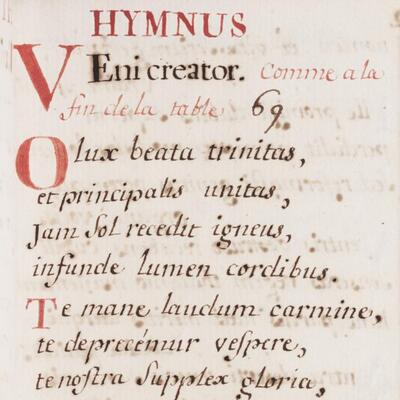 HYMNUS
VEni creator. Comme a la
fin de la table 69
O lux beata trinitas,
et principalis unitas,
Jam Sol recedit igneus,
infunde lumen cordibus.
Te mane laudum carmine,
te deprecémur vespere,
te nostra Supplex gloria,